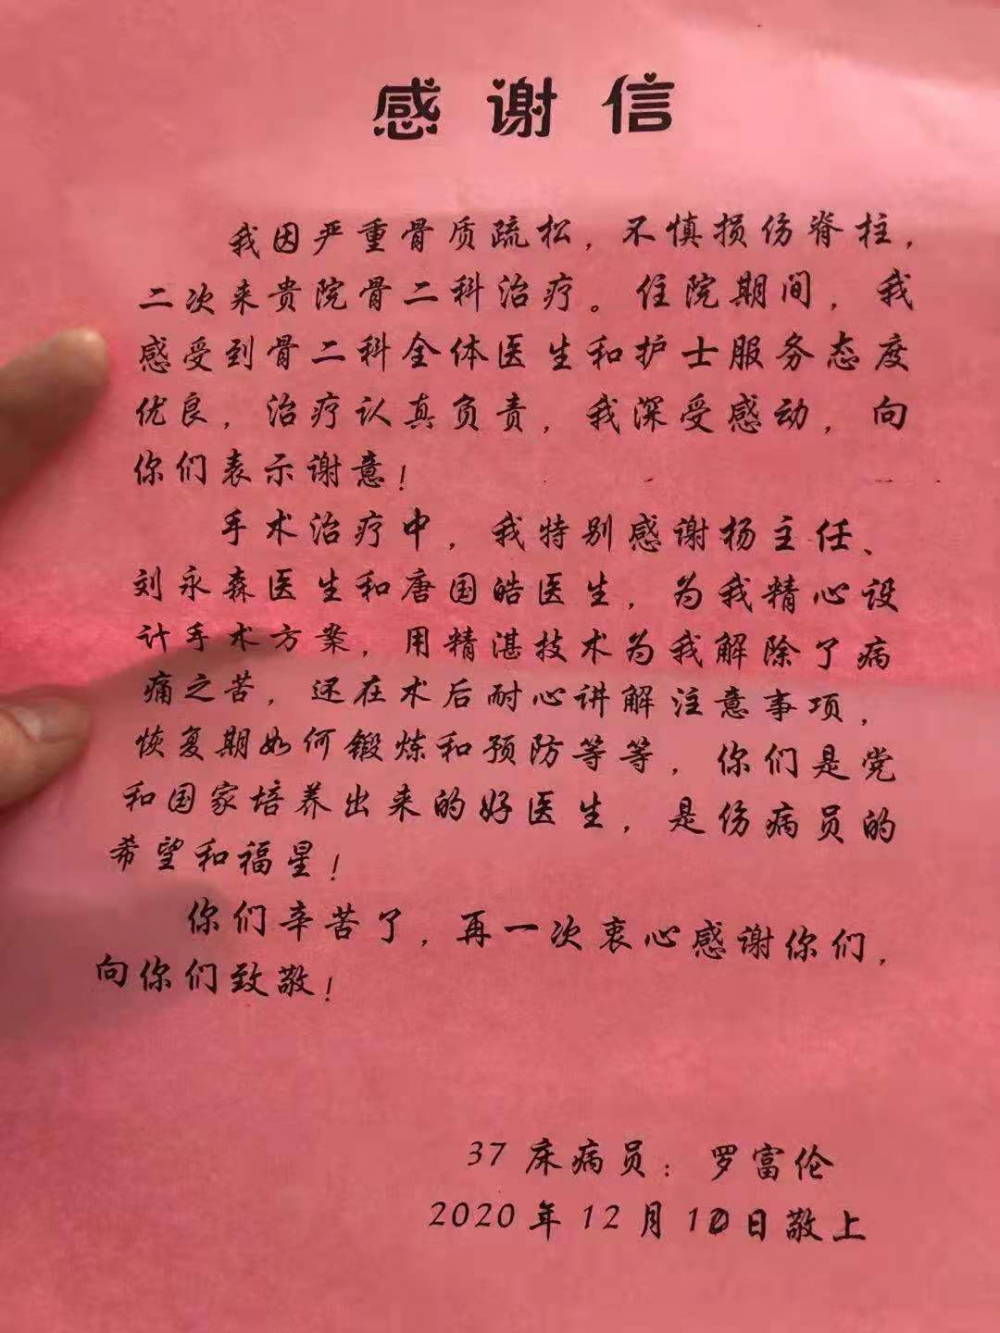 感谢信
我因严重骨质疏松，不慎损伤脊柱，
二次来贵院骨二科治疗。住院期间，我
感受到骨二科全体医生和护士服务态度
优良，治疗认真负责，我深受感动，向
你们表示谢意！
手术治疗中，我特别感谢杨主任、
刘永森医生和唐国皓医生，为我精心设
计手术方案，用精湛技术为我解除了病
痛之苦，还在术后耐心讲解注意事项，
恢复期如何锻炼和预防等等，你们是党
和国家培养出来的好医生，是伤病员的
希望和福星！
你们辛苦了，再一次衷心感谢你们，
向你们致敬！
37床病员：罗富伦
2020年12月10日敬上